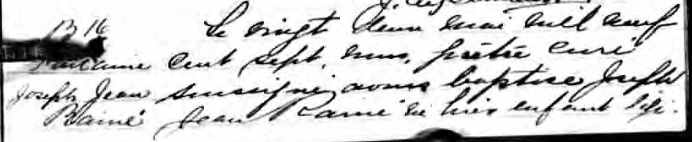 B 16 Le vingt deux mai mil neuf
cent sept, nous, prêtre curé
Joseph Jean soussigné avons baptisé Joseph
Rainé Jean Rainé né hier enfant légi-